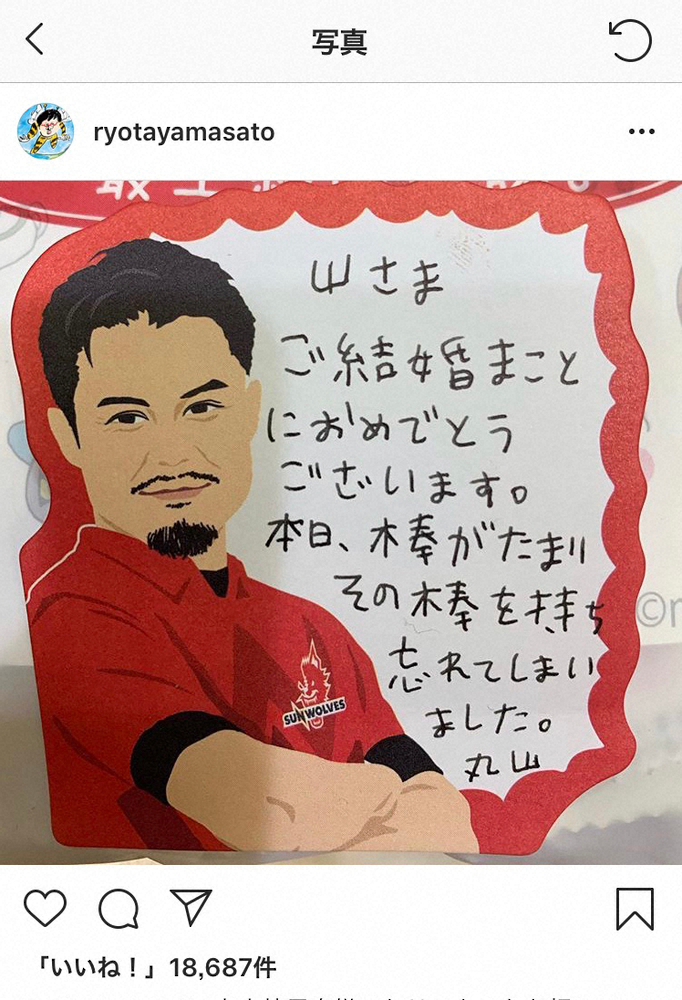 写真
ryotayamasato
山さま
ご結婚まこと
におめでとう
ございます。
本日、木棒がたまり
その木棒を持ち
忘れてしまい
ました。
丸山
SUNWOLVES
「いいね！」18,687件